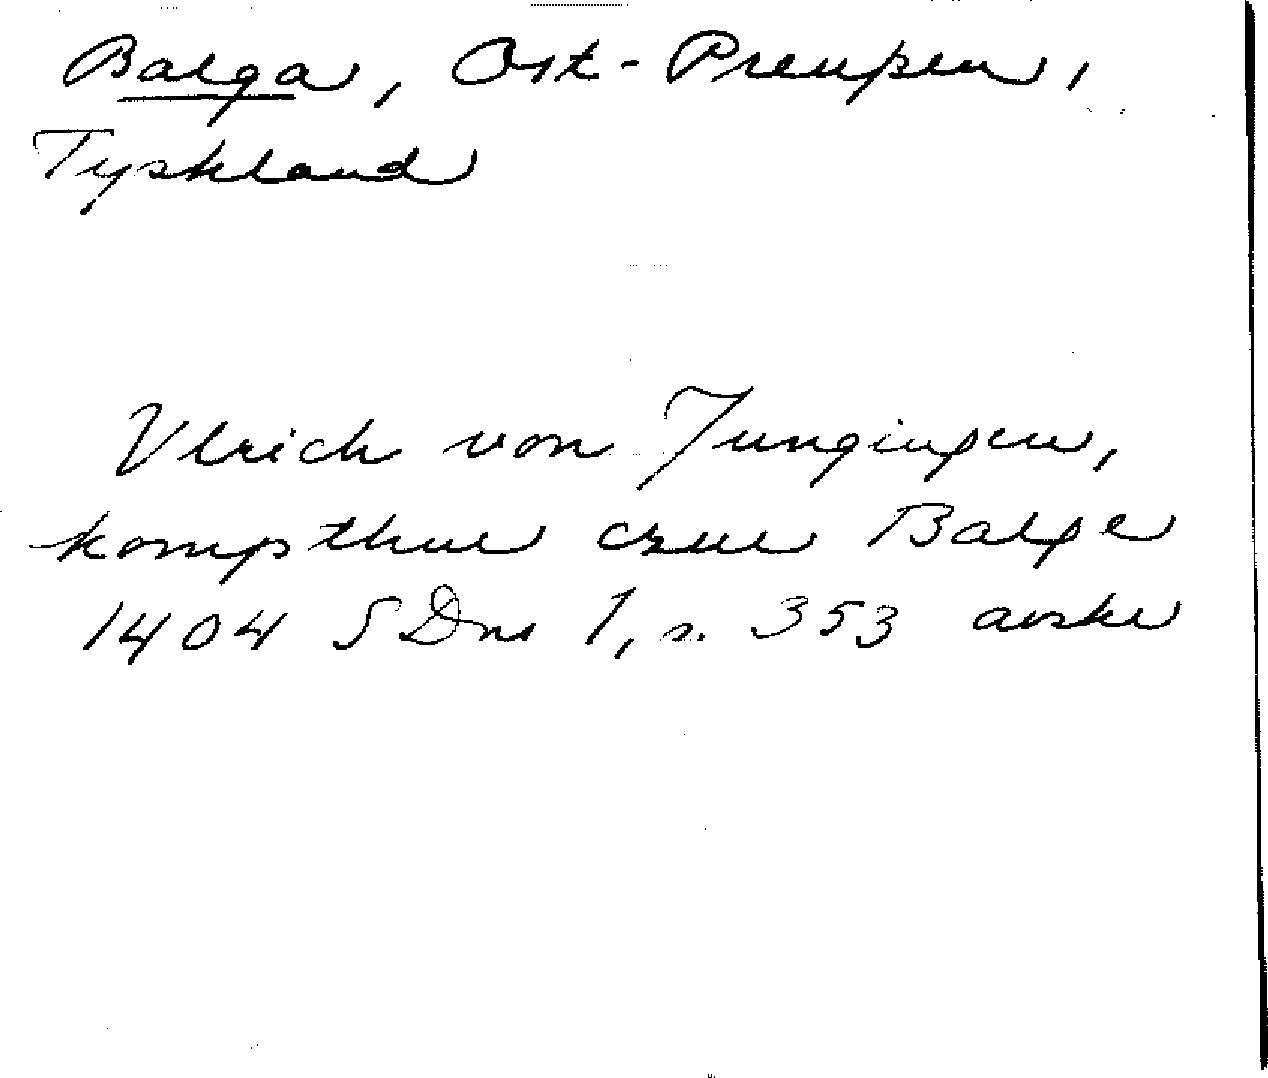 Balga, Ost-Preußen,
Tyskland
Vlrich von Jungingen,
kompthur czur Balge
1404 SDns 1, s. 353 avskr